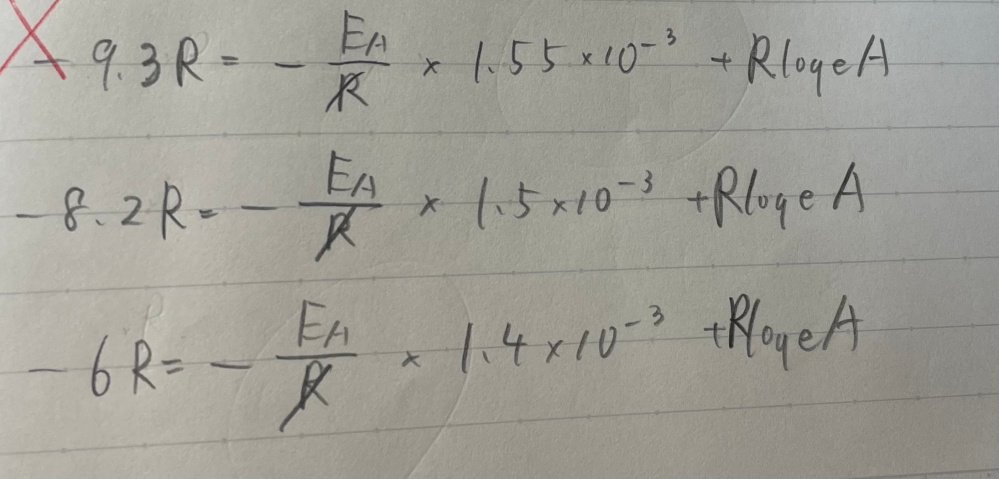 - 9.3R = - E_A/R × 1.55 × 10⁻³ + RlogeA
- 8.2R = - E_A/R × 1.5 × 10⁻³ + RlogeA
- 6R = - E_A/R × 1.4 × 10⁻³ + RlogeA